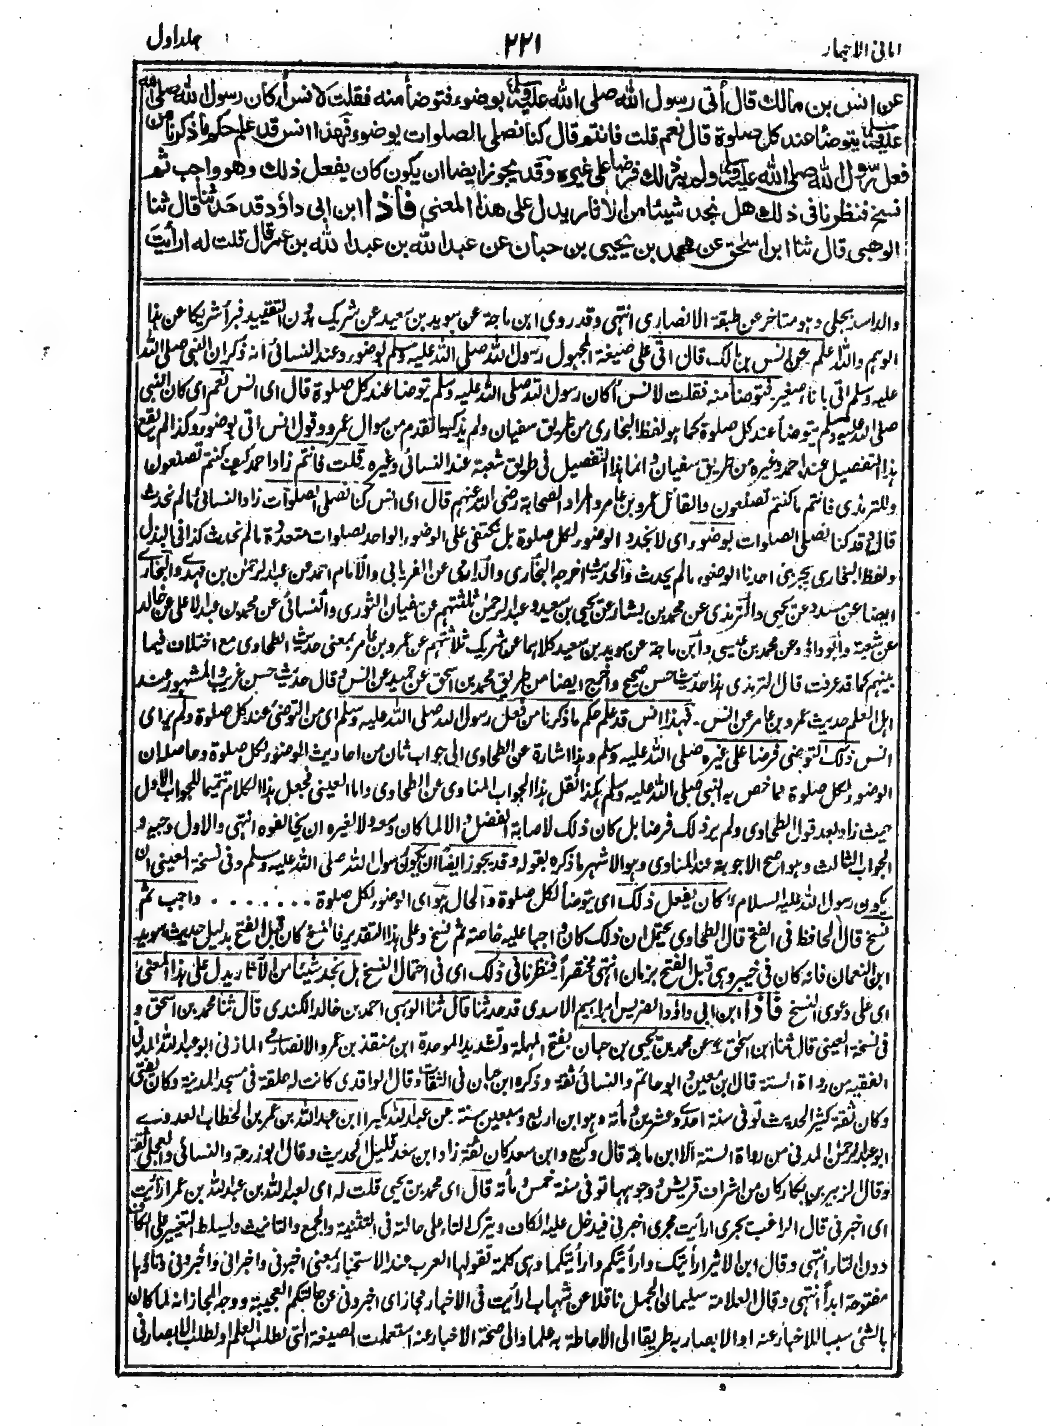 امانی الاحبار
٢٢١
جلد اول
عن انس بن مالك قال أتى رسول الله صلى الله عليه وسلم بوضوء فتوضأ منه فقلت لانس أكان رسول الله صلى الله
عليه وسلم يتوضأ عند كل صلوة قال نعم قلت فانتم قال كنا نصلى الصلوات بوضوء فهذا انس قد علم حكم ما ذكرنا من
فعل رسول الله صلى الله عليه وسلم ولم ير ذلك فرضا على غيره وقد يجوز ايضا ان يكون كان يفعل ذلك وهو واجب ثم
نسخ فنظرنا فى ذلك هل نجد شيئا من الآثار يدل على هذا المعنى فاذا ابن ابى داؤد قد حدثنا قال ثنا
الوهبى قال ثنا ابن اسحق عن محمد بن يحيى بن حبان عن عبد الله بن عبد الله بن عمر قال قلت له ارأيت
والد اسد بجلى وهو متاخر عن طبقة الانصارى انتهى وقد روى ابن ماجة عن سويد بن سعيد عن شريك بدون التقييد فبرأ شريكا عن هذا
الوهم والله اعلم عن انس بن مالك قال اتى على صيغة المجهول رسول الله صلى الله عليه وسلم بوضوء وعند النسائى انه ذكر ان النبى صلى الله
عليه وسلم اتى باناء صغير فتوضأ منه فقلت لانس أكان رسول الله صلى الله عليه وسلم يتوضأ عند كل صلوة قال اى انس نعم اى كان النبى
صلى الله عليه وسلم يتوضأ عند كل صلوة كما هو لفظ البخارى من طريق سفيان ولم يذكر ما تقدم من سوال عمرو وقول انس اتى بوضوء وكذا لم يقع
هذا التفصيل عند احمد وغيره من طريق سفيان وانما هذا التفصيل فى طريق شعبة عند النسائى وغيره قلت فانتم زاد احمد كيف كنتم تصنعون
وللترمذى فانتم ما كنتم تصنعون والقائل عمرو بن عامر والمراد الصحابة رضى الله عنهم قال اى انس كنا نصلى الصلوات زاد النسائى ما لم نحدث
قال وقد كنا نصلى الصلوات بوضوء اى لا نجدد الوضوء لكل صلوة بل نكتفى على الوضوء الواحد لصلوات متعددة ما لم نحدث كذا فى البذل
ولفظ البخارى يجزئ احدنا الوضوء ما لم يحدث والحديث اخرجه البخارى والدارمى عن الفريابى والامام احمد عن عبد الرحمن بن مهدى والبخارى
ايضا عن مسدد عن يحيى والترمذى عن محمد بن بشار عن يحيى بن سعيد وعبد الرحمن ثلثتهم عن سفيان الثورى والنسائى عن محمد بن عبد الاعلى عن خالد
عن شعبة وابو داؤد عن محمد بن عيسى وابن ماجة عن سويد بن سعيد كلاهما عن شريك ثلاثتهم عن عمرو بن عامر بمعنى حديث الطحاوى مع اختلاف فيما
بينهم كما قد عرفت قال الترمذى هذا حديث حسن صحيح واخرج ايضا من طريق محمد بن اسحق عن حميد عن انس وقال حديث حسن غريب والمشهور عند
اهل العلم حديث عمرو بن عامر عن انس۔ فهذا انس قد علم حكم ما ذكرنا من فعل رسول الله صلى الله عليه وسلم اى من التوضى عند كل صلوة ولم ير اى
انس ذلك التوضى فرضا على غيره صلى الله عليه وسلم وهذا اشارة عن الطحاوى الى جواب ثان من احاديث الوضوء لكل صلوة وحاصله ان
الوضوء لكل صلوة مما خص به النبى صلى الله عليه وسلم هكذا نقل هذا الجواب المناوى عن الطحاوى واما العينى فجعل هذا الكلام تتميما للجواب الاول
حيث زاد بعد قول الطحاوى ولم ير ذلك فرضا بل كان ذلك لاصابة الفضل والا لما كان وسعه ولا لغيره ان يخالفوه انتهى والاول وجيه و
الجواب الثالث وهو اصح الاجوبة عند المناوى وهو الاشهر ما ذكره بقوله وقد يجوز ايضا ان يكون رسول الله صلى الله عليه وسلم وفى نسخة العينى ان
يكون رسول الله عليه السلام كان يفعل ذلك اى يتوضأ لكل صلوة والحال هو اى الوضوء لكل صلوة ........ واجب ثم
نسخ قال الحافظ فى الفتح قال الطحاوى يحتمل ان ذلك كان واجبا عليه خاصة ثم نسخ وعلى هذا التقدير فالنسخ كان قبل الفتح بدليل حديث سويد
ابن النعمان فانه كان فى خيبر وهى قبل الفتح بزمان انتهى مختصرا فنظرنا فى ذلك اى فى احتمال النسخ هل نجد شيئا من الآثار يدل على هذا المعنى
اى على دعوى النسخ فاذا ابن ابى داؤد والضريس ابراهيم الاسدى قد حدثنا قال ثنا الوهبى احمد بن خالد الكندى قال ثنا محمد بن اسحق و
فى نسخة العينى قال ثنا ابن اسحق عن محمد بن يحيى بن حبان بفتح المهملة وتشديد الموحدة ابن منقذ بن عمرو الانصارى المازنى ابو عبد الله المدنى
الفقيه من رواة الستة قال ابن معين وابو حاتم والنسائى ثقة وذكره ابن حبان فى الثقات وقال الواقدى كانت له حلقة فى مسجد المدينة وكان يفتى
وكان ثقة كثير الحديث توفى سنة احدى وعشرين ومأة وهو ابن اربع وسبعين سنة عن عبد الله مكبرا ابن عبد الله بن عمر بن الخطاب العدوى
ابو عبد الرحمن المدنى من رواة الستة الا ابن ماجة قال وكيع وابن سعد كان ثقة زاد ابن سعد قليل الحديث وقال ابو زرعة والنسائى والعجلى ثقة
وقال الزبير بن بكار كان من اشراف قريش ووجوهها توفى سنة خمس ومأة قال اى محمد بن يحيى قلت له اى لعبد الله بن عبد الله بن عمر ارأيت
اى اخبرنى قال الراغب يجرى ارأيت مجرى اخبرنى فيدخل عليه الكاف ويترك التاء على حالته فى التثنية والجمع والتانيث ويسلط التغيير على الكاف
دون التاء انتهى وقال ابن الاثير ارأيتك وارأيتكم وارأيتكما وهى كلمة تقولها العرب عند الاستخبار بمعنى اخبرنى واخبرانى واخبرونى وتاؤها
مفتوحة ابدا انتهى وقال العلامة سليمان الجمل ناقلا عن شهاب ارأيت فى الاخبار مجاز اى اخبرونى عن حالتكم العجيبة ووجه المجاز انه لما كان
بالشئ سببا للاخبار عنه او الابصار به طريقا الى الاحاطة به علما والى صحة الاخبار عنه استعملت الصيغة التى لطلب العلم او لطلب الابصار فى